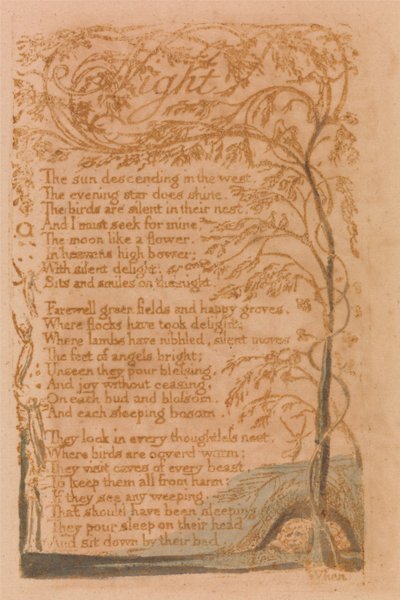 Night
The sun descending in the west.
The evening star does shine.
The birds are silent in their nest.
And I must seek for mine.
The moon like a flower.
In heavens high bower;
With silent delight;
Sits and smiles on the night.
Farewell green fields and happy groves.
Where flocks have took delight;
Where lambs have nibbled, silent moves
The feet of angels bright;
Unseen they pour blessing,
And joy without ceasing,
On each bud and blossom,
And each sleeping bosom.
They look in every thoughtless nest,
Where birds are coverd warm;
They visit caves of every beast,
To keep them all from harm;
If they see any weeping,
That should have been sleeping
They pour sleep on their head
And sit down by their bed.
When